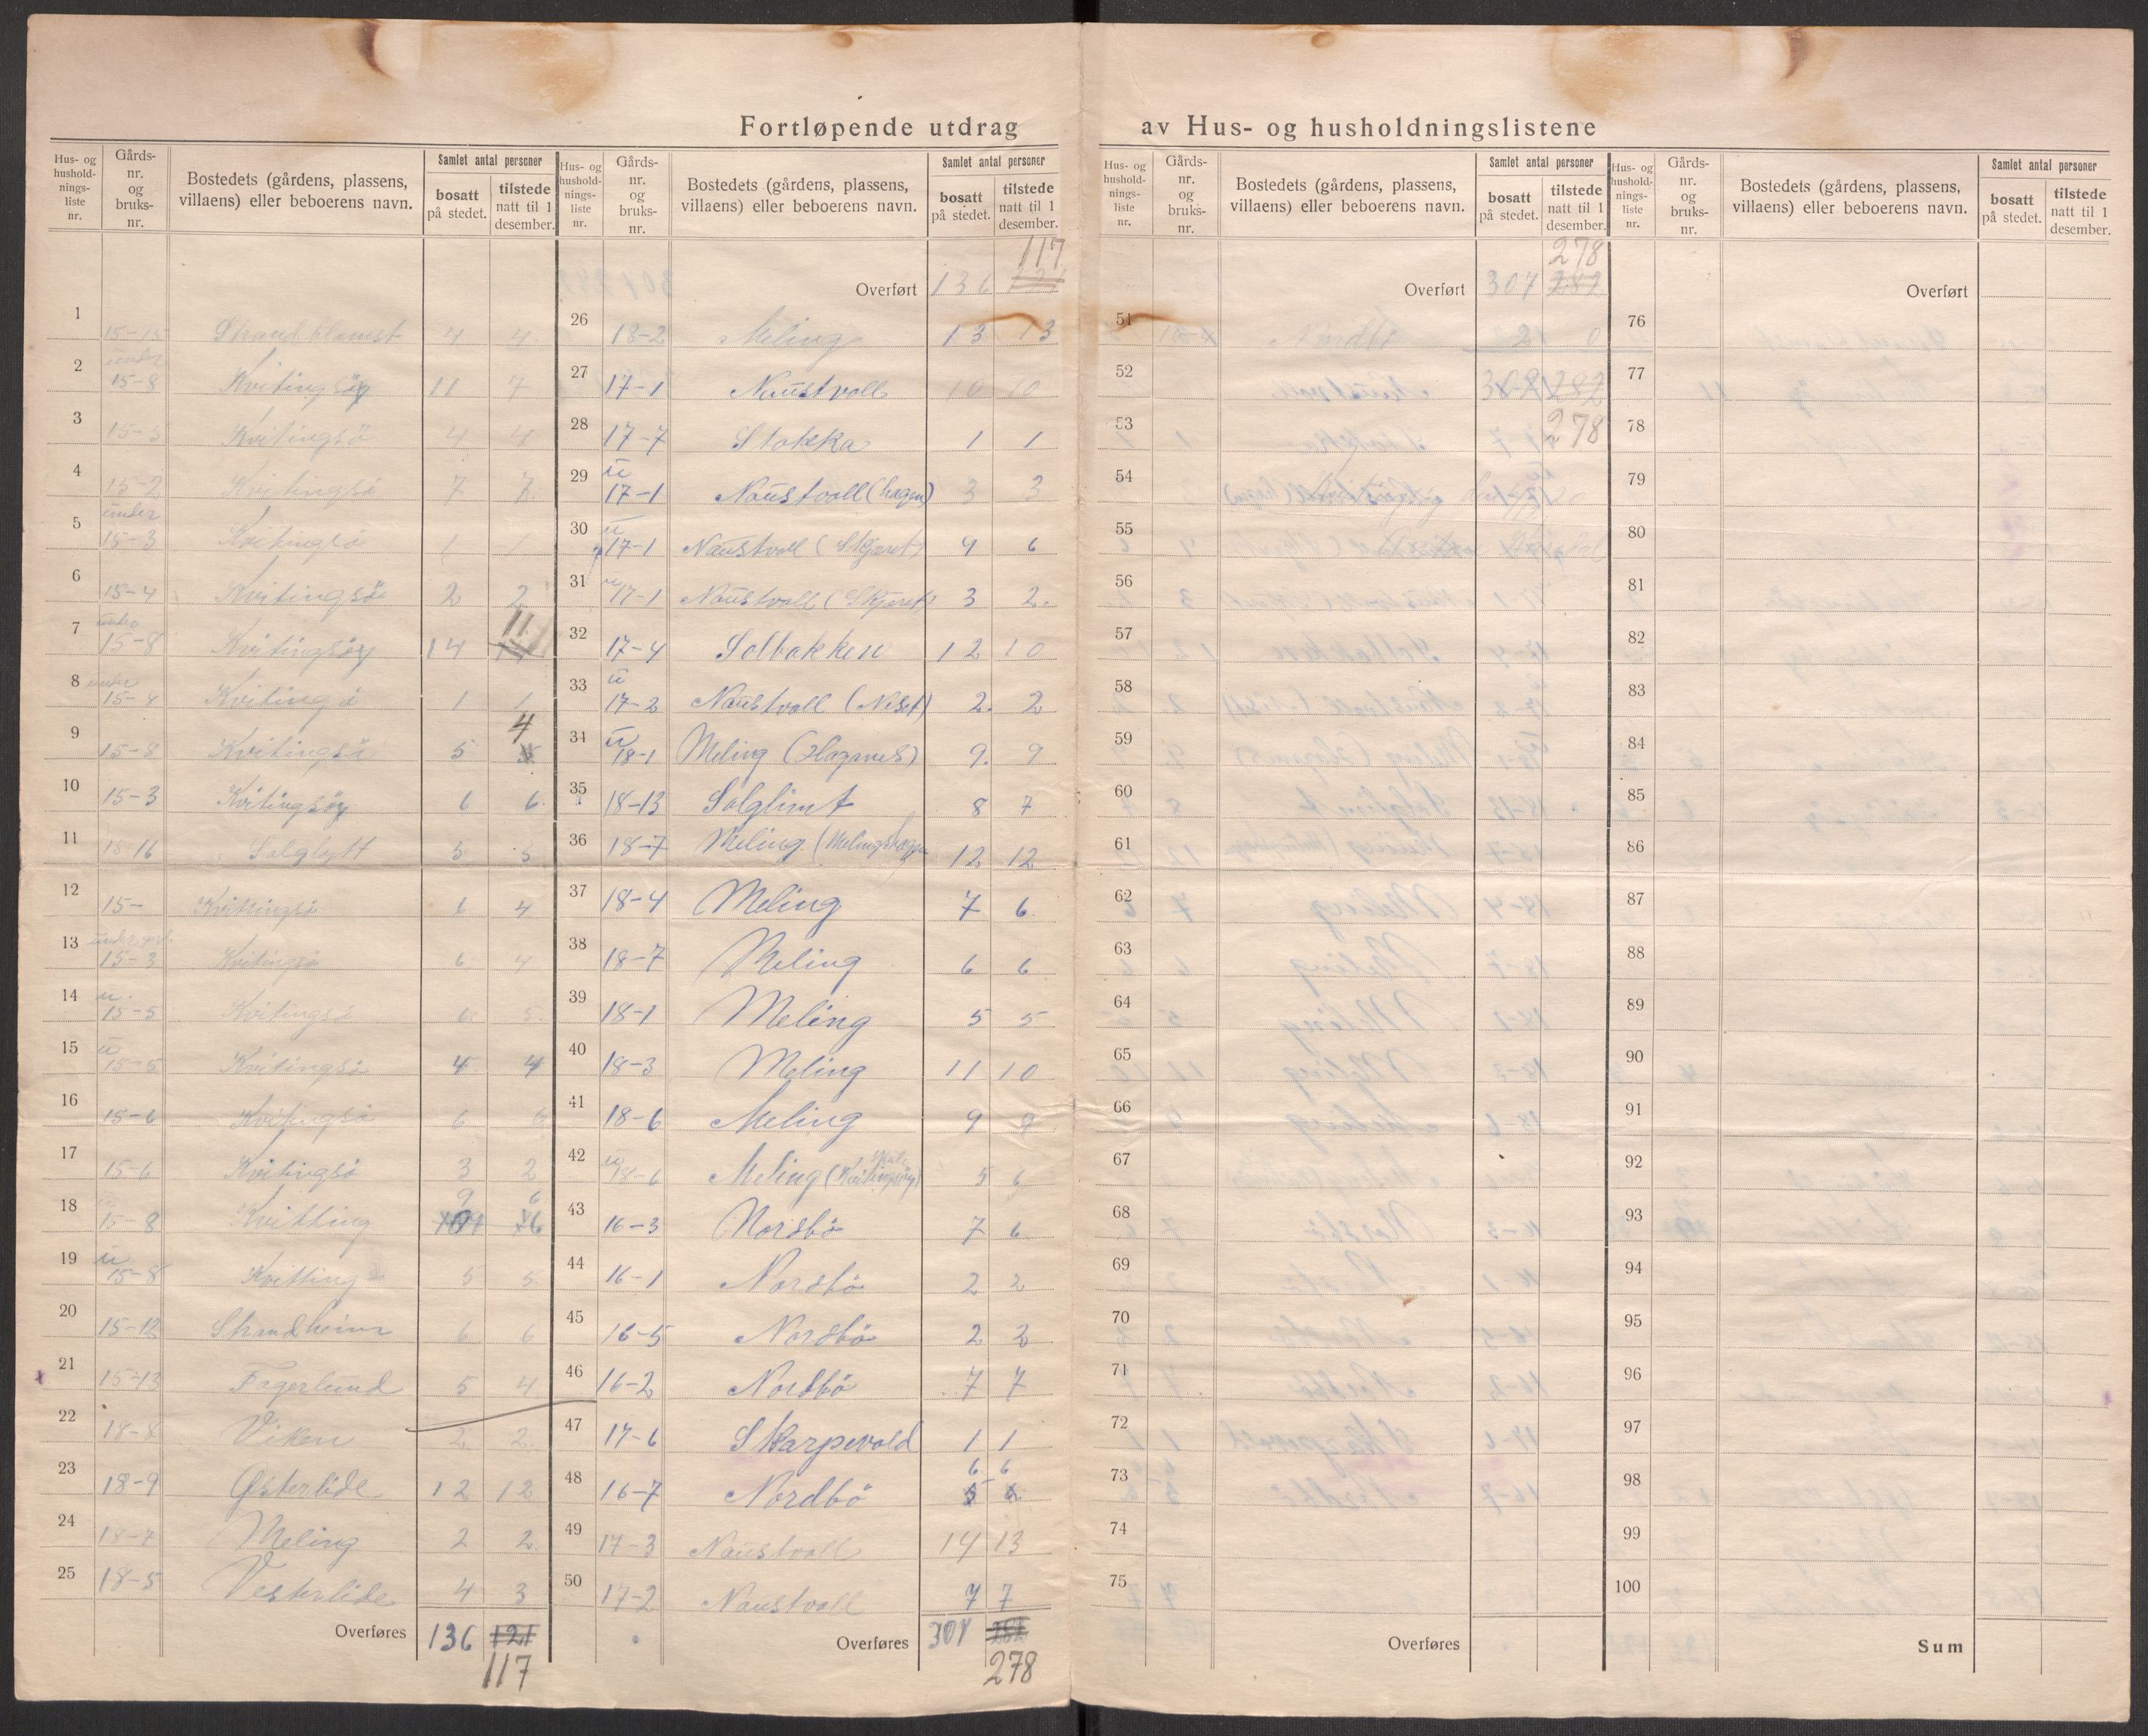 Fortløpende utdrag av Hus- og husholdningslistene
Hus- og hushold- nings- liste nr. | Gårds- nr. og bruks- nr. | Bostedets (gårdens, plassens, villaens) eller beboerens navn. | Samlet antal personer | bosatt på stedet. | tilstede natt til 1 desember.
1 | 15-15 | Strandblomst | 4 | 4
2 | under 15-8 | Kvitingsøy | 11 | 7
3 | 15-5 | Kvitingsö | 4 | 4
4 | 15-2 | Kvitingsö | 7 | 7
5 | under 15-3 | Kvitingsö | 1 | 1
6 | 15-4 | Kvitingsö | 2 | 2
7 | under 15-8 | Kvitingsøy | 14 | 11
8 | under 15-4 | Kvitingsö | 1 | 1
9 | 15-8 | Kvitingsö | 5 | 4
10 | 15-3 | Kvitingsöy | 6 | 6
11 | 15 16 | Solglytt | 5 | 5
12 | 15- | Kvittingsö | 6 | 4
13 | under 15-3 | Kvitingsö | 6 | 4
14 | u. 15-5 | Kvitingsö | 6 | 5
15 | u 15-5 | Kvitingsö | 4 | 4
16 | 15-6 | Kvitingsö | 6 | 6
17 | 15-6 | Kvitingsö | 3 | 2
18 | 15-8 | Kvitting | 9 | 6
19 | u 15-8 | Kvitting | 5 | 5
20 | 15-12 | Strandheim | 6 | 6
21 | 15-13 | Fagerlund | 5 | 4
22 | 18-8 | Viken | 2 | 2
23 | 18-9 | Østerlide | 12 | 12
24 | 18-7 | Meling | 2 | 2
25 | 18-5 | Vesterlide | 4 | 3
Overføres | 136 | 121
117
Hus- og hushold- nings- liste nr. | Gårds- nr. og bruks- nr. | Bostedets (gårdens, plassens, villaens) eller beboerens navn. | Samlet antal personer | bosatt på stedet. | tilstede natt til 1 desember.
117
Overført | 136 | 121
26 | 18-2 | Meling | 13 | 13
27 | 17-1 | Naustvoll | 10 | 10
28 | 17-7 | Stokka | 1 | 1
29 | u 17-1 | Naustvoll (hagen) | 3 | 3
30 | u 17-1 | Naustvoll (Skjæret) | 4 | 6
31 | u 17-1 | Naustvoll (Skjæret) | 3 | 2
32 | 17-4 | Solbakken | 12 | 10
33 | u 17-2 | Naustvoll (Neset) | 2 | 2
34 | u 18-1 | Meling (Hagenes) | 9 | 9
35 | 18-13 | Solglimt | 8 | 7
36 | 18-7 | Meling (Melingshagen | 12 | 12
37 | 18-4 | Meling | 7 | 6
38 | 18-7 | Meling | 6 | 6
39 | 18-1 | Meling | 5 | 5
40 | 18-3 | Meling | 11 | 10
41 | 18-6 | Meling | 9 | 9
42 | u 18-6 | Meling (Kvitingsöy) | 5 | 6
43 | 16-3 | Nordbö | 7 | 6
44 | 16-1 | Nordbö | 2 | 2
45 | 16-5 | Nordbö | 2 | 2
46 | 16-2 | Nordbö | 7 | 7
47 | 17-6 | Skarpevold | 1 | 1
48 | 16-7 | Nordbö | 6 | 6
49 | 17-3 | Naustvoll | 14 | 13
50 | 17-2 | Naustvoll | 7 | 7
Overføres | 307 | 282
278
Hus- og hushold- nings- liste nr. | Gårds- nr. og bruks- nr. | Bostedets (gårdens, plassens, villaens) eller beboerens navn. | Samlet antal personer | bosatt på stedet. | tilstede natt til 1 desember.
278
Overført | 307 | 282
51 | Nordbö | 2 | 0
52 | 309 | 282
53 | 278
54
55
56
57
58
59
60
61
62
63
64
65
66
67
68
69
70
71
72
73
74
75
Overføres
Hus- og hushold- nings- liste nr. | Gårds- nr. og bruks- nr. | Bostedets (gårdens, plassens, villaens) eller beboerens navn. | Samlet antal personer | bosatt på stedet. | tilstede natt til 1 desember.
Overført
76
77
78
79
80
81
82
83
84
85
86
87
88
89
90
91
92
93
94
95
96
97
98
99
100
Sum